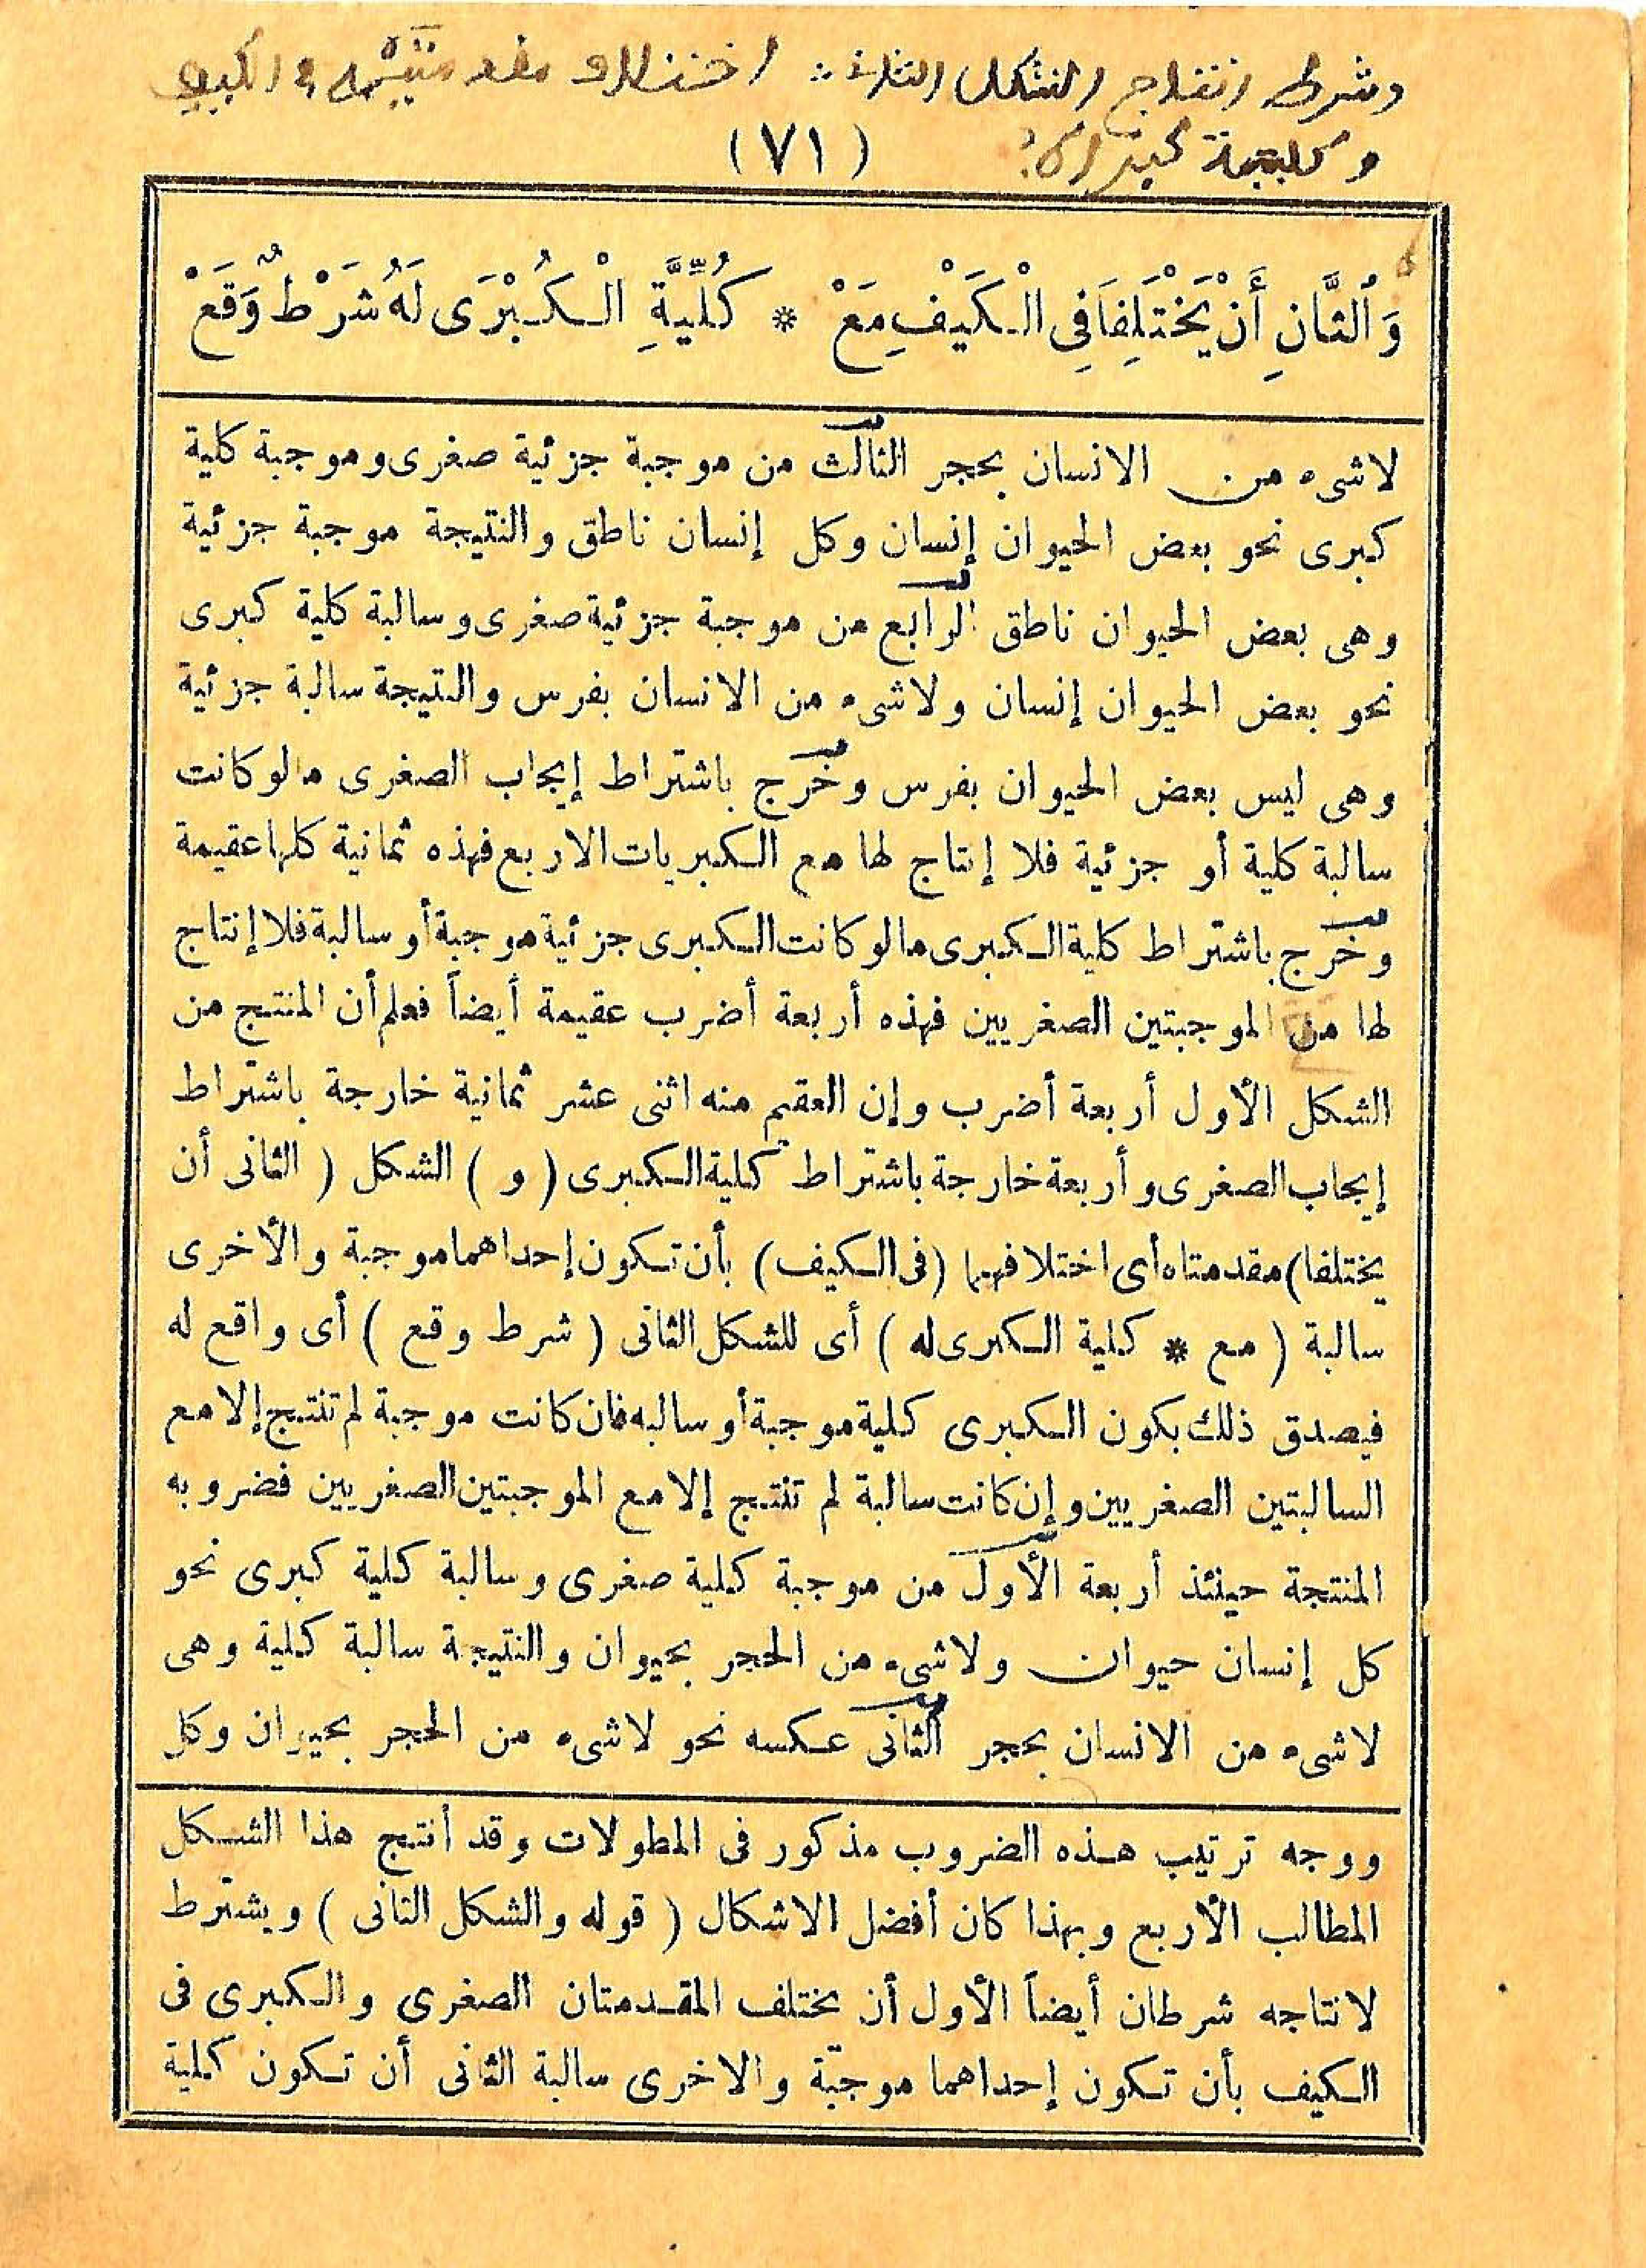 وشرط انتاج الشكل الثانى اختلاف مقدمتيه فى الكيف
وكلية كبراه
(٧١)
وَالثَّانِ أَنْ يَخْتَلِفَا فِى الْكَيْفِ مَعْ * كُلِّيَّةِ الْكُبْرَى لَهُ شَرْطٌ وَقَعْ
لاشىء من الانسان بحجر الثالث من موجبة جزئية صغرى وموجبة كلية
كبرى نحو بعض الحيوان إنسان وكل إنسان ناطق والنتيجة موجبة جزئية
وهى بعض الحيوان ناطق الرابع من موجبة جزئية صغرى وسالبة كلية كبرى
نحو بعض الحيوان إنسان ولاشىء من الانسان بفرس والنتيجة سالبة جزئية
وهى ليس بعض الحيوان بفرس وخرج باشتراط إيجاب الصغرى مالو كانت
سالبة كلية أو جزئية فلا إنتاج لها مع الكبريات الاربع فهذه ثمانية كلها عقيمة
وخرج باشتراط كلية الكبرى مالو كانت الكبرى جزئية موجبة أو سالبة فلا إنتاج
لها من الموجبتين الصغريين فهذه أربعة أضرب عقيمة أيضاً فعلم أن المنتج من
الشكل الأول أربعة أضرب وإن العقيم منه اثنى عشر ثمانية خارجة باشتراط
إيجاب الصغرى وأربعة خارجة باشتراط كلية الكبرى (و) الشكل (الثانى أن
يختلفا) مقدمتاه أى اختلافهما (فى الكيف) بأن تكون إحداهما موجبة والأخرى
سالبة (مع * كلية الكبرى له) أى للشكل الثانى (شرط وقع) أى واقع له
فيصدق ذلك بكون الكبرى كلية موجبة أو سالبه فان كانت موجبة لم تنتج إلا مع
السالبتين الصغريين وإن كانت سالبة لم تنتج إلا مع الموجبتين الصغريين فضروبه
المنتجة حينئذ أربعة الأول من موجبة كلية صغرى وسالبة كلية كبرى نحو
كل إنسان حيوان ولاشىء من الحجر بحيوان والنتيجة سالبة كلية وهى
لاشىء من الانسان بحجر الثانى عكسه نحو لاشىء من الحجر بحيوان وكل
ووجه ترتيب هذه الضروب مذكور فى المطولات وقد أنتج هذا الشكل
المطالب الأربع وبهذا كان أفضل الاشكال (قوله والشكل الثانى) ويشترط
لانتاجه شرطان أيضاً الأول أن يختلف المقدمتان الصغرى والكبرى فى
الكيف بأن تكون إحداهما موجبة والاخرى سالبة الثانى أن تكون كلية